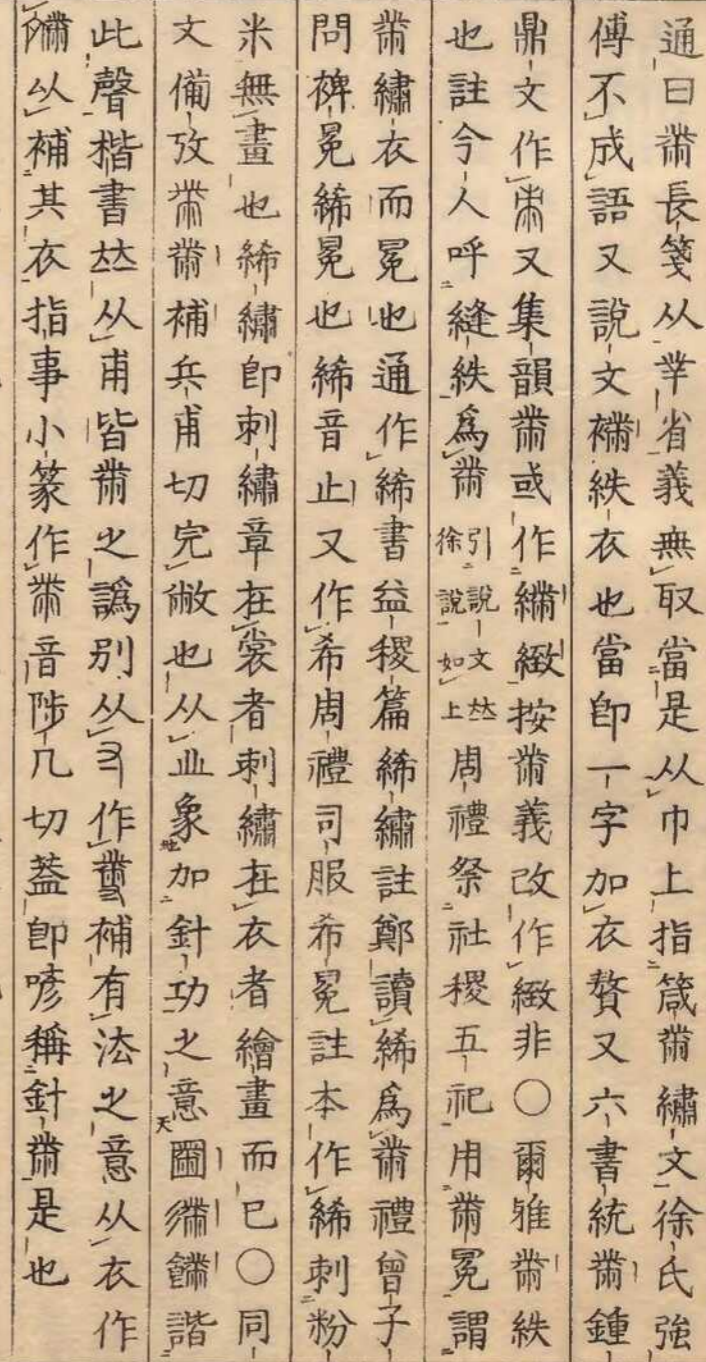 通曰黹長箋从丵省義無取當是从巾上指箴黹繡文徐氏強
傅不成語又說文襧紩衣也當即一字加衣贅又六書統黹鍾
鼎文作㡀又集韻黹或作𦅸緻按黹義改作緻非○爾雅黹紩
也註今人呼縫紩爲黹引說文𠀤徐說如上周禮祭社稷五祀用黹冕謂
黹繡衣而冕也通作絺書益稷篇絺繡註鄭讀絺爲黹禮曾子
問裨冕絺冕也絺音止又作希周禮司服希冕註本作絺刺粉
米無畫也絺繡即刺繡章在裳者刺繡在衣者繪畫而已○同
文備攷黹黹補兵甫切完敝也从㡀象加針功之意圖諧
此聲楷書𠀤从甫皆黹之譌別从作補有法之意从衣作
襧从補其衣指事小篆作黹音陟几切蓋即喭稱針黹是也